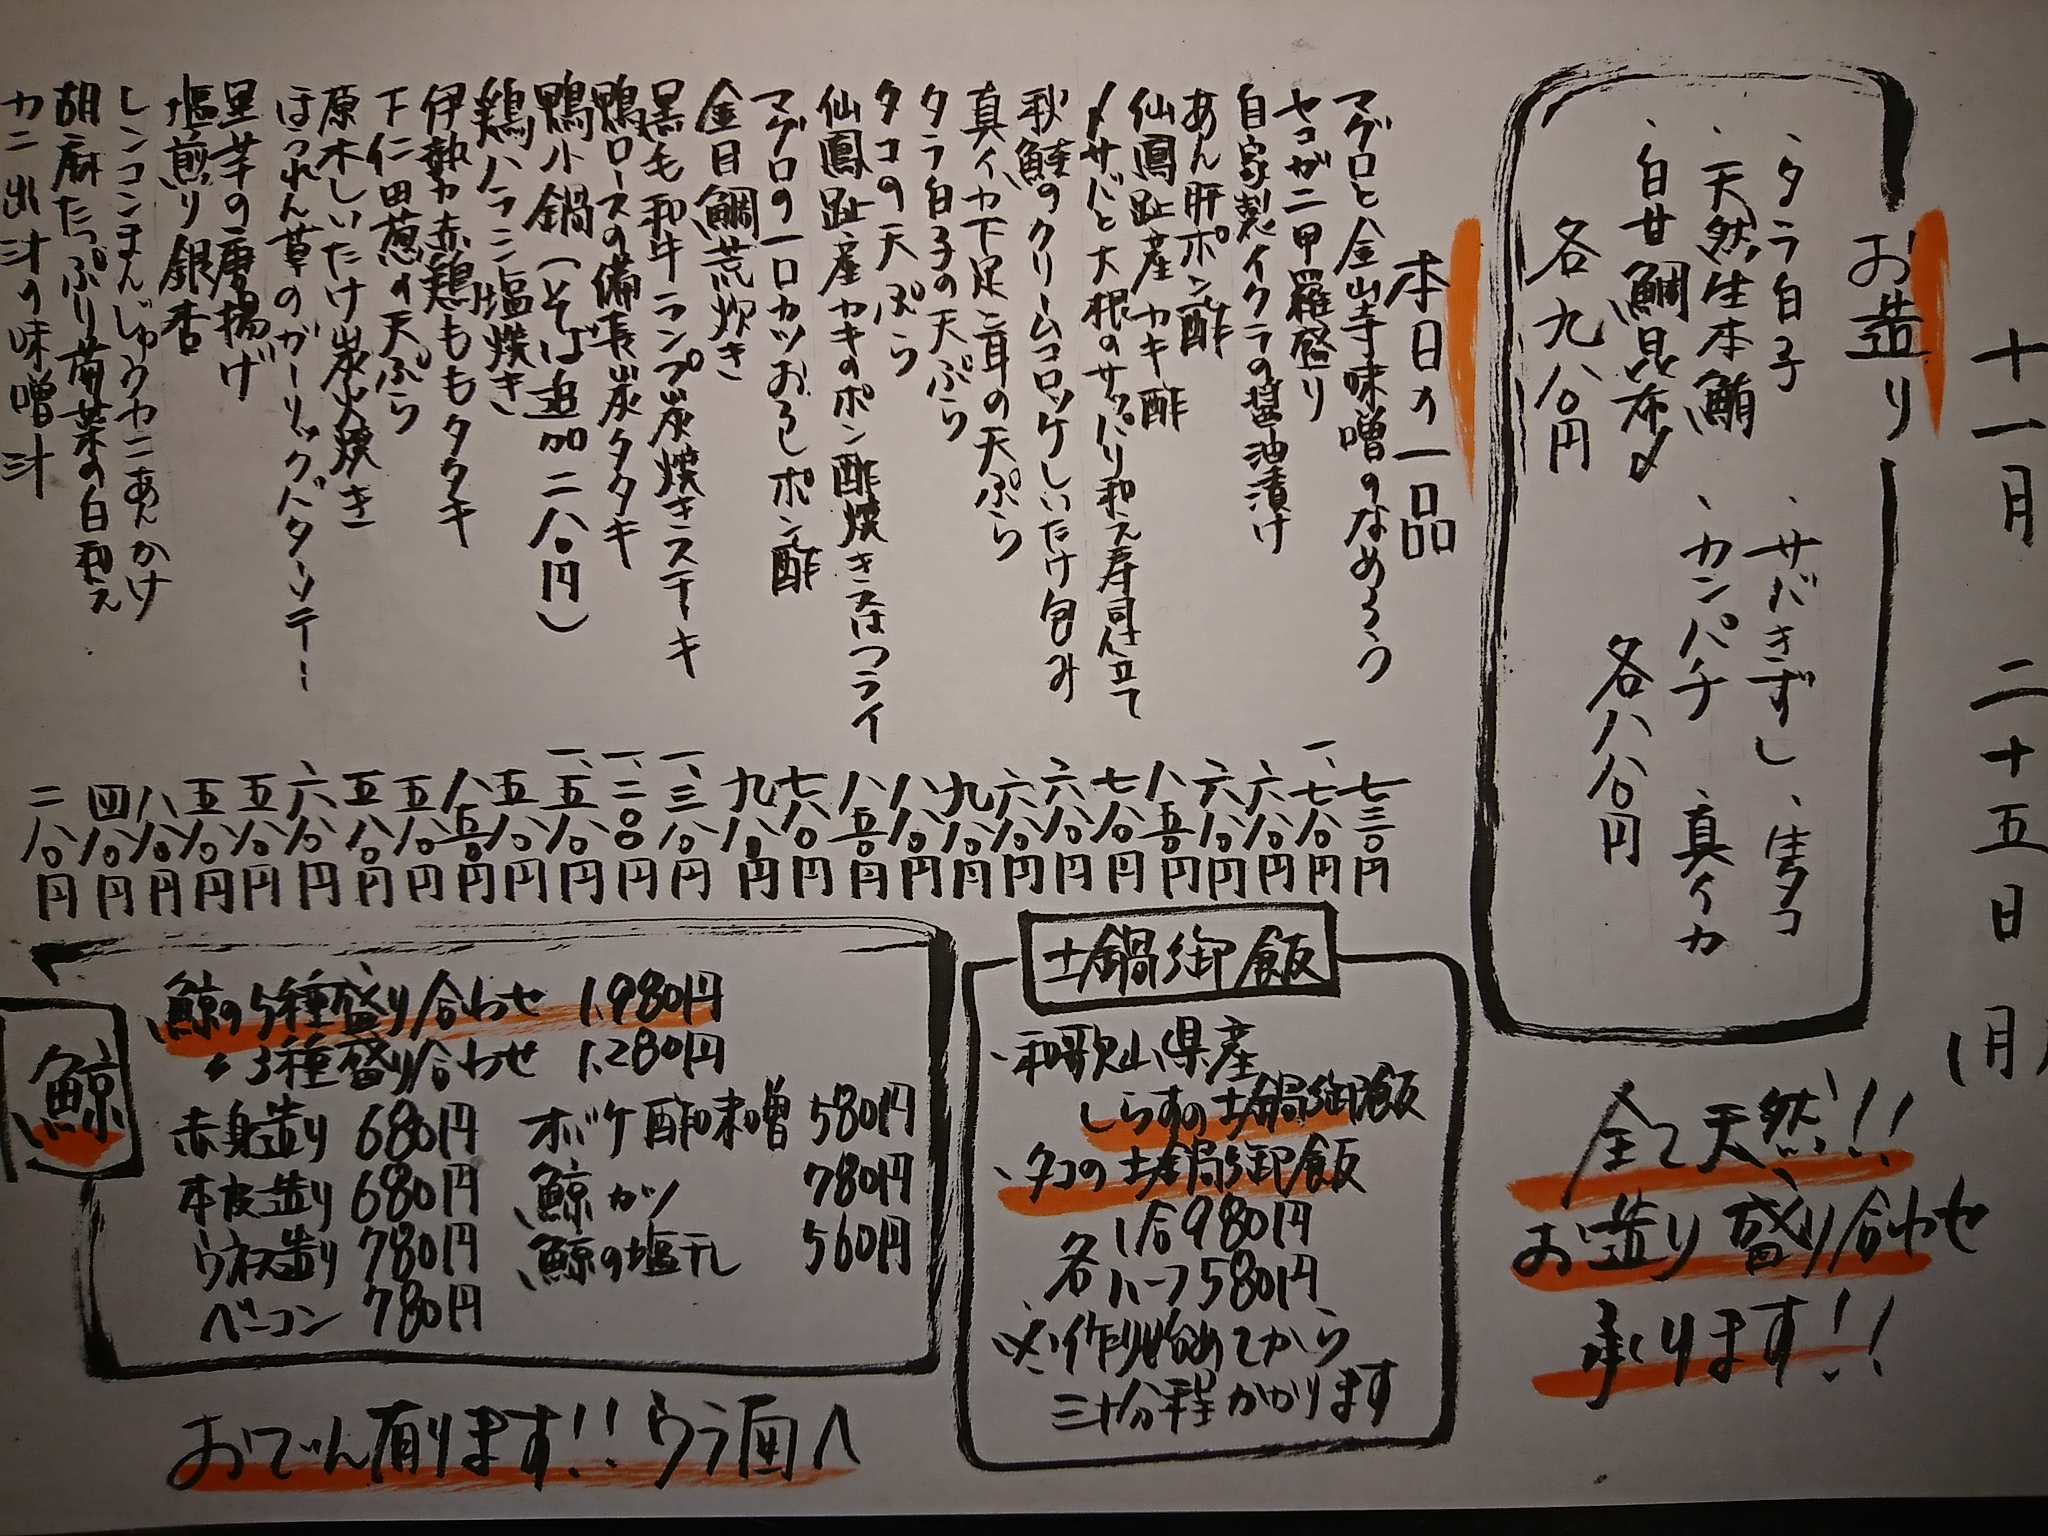 十一月二十五日(月)
お造り
、タラ白子
、天然生本鮪
、白甘鯛昆布〆
各九八〇円
、サバきずし、生タコ
、カンパチ、真イカ
各八八〇円
全て天然!!
お造り盛り合わせ
承ります!!
本日の一品
マグロと金山寺味噌のなめろう 七三〇円
セコガニ甲羅盛り 一、七八〇円
自家製イクラの醤油漬け 六八〇円
あん肝ポン酢 六八〇円
仙鳳趾産カキ酢 八五〇円
〆サバと大根のサッパリ和え寿司仕立て 七八〇円
秋鮭のクリームコロッケしいたけ包み 六八〇円
真イカ下足と耳の天ぷら 六八〇円
タラ白子の天ぷら 九八〇円
タコの天ぷら 八八〇円
仙鳳趾産カキのポン酢焼き又はフライ 八五〇円
マグロの一口カツおろしポン酢 七八〇円
金目鯛荒炊き 九八〇円
黒毛和牛ランプ炭焼きステーキ 一、三八〇円
鴨ロースの備長炭タタキ 一、二〇〇円
鴨小鍋(そば追加二八〇円) 一、五八〇円
鶏ハラミ塩焼き 五八〇円
伊勢赤鶏ももタタキ 八五〇円
下仁田葱の天ぷら 五八〇円
原木しいたけ炭火焼き 五八〇円
ほうれん草のガーリックバターソテー 六八〇円
里芋の唐揚げ 五八〇円
塩煎り銀杏 五八〇円
レンコンまんじゅうカニあんかけ 八八〇円
胡麻たっぷり菊菜の白和え 四八〇円
カニ出汁の味噌汁 二八〇円
土鍋御飯
、和歌山県産
しらすの土鍋御飯
、タコの土鍋御飯
1合980円
各ハーフ580円
※作り始めてから
三十分程かかります
鯨
鯨の5種盛り合わせ 1,980円
〃3種盛り合わせ 1,280円
赤身造り 680円 オバケ酢味噌 580円
本皮造り 680円 鯨カツ 780円
ウネス造り 780円 鯨の塩干し 560円
ベーコン 780円
おでん有ります!!ウラ面へ